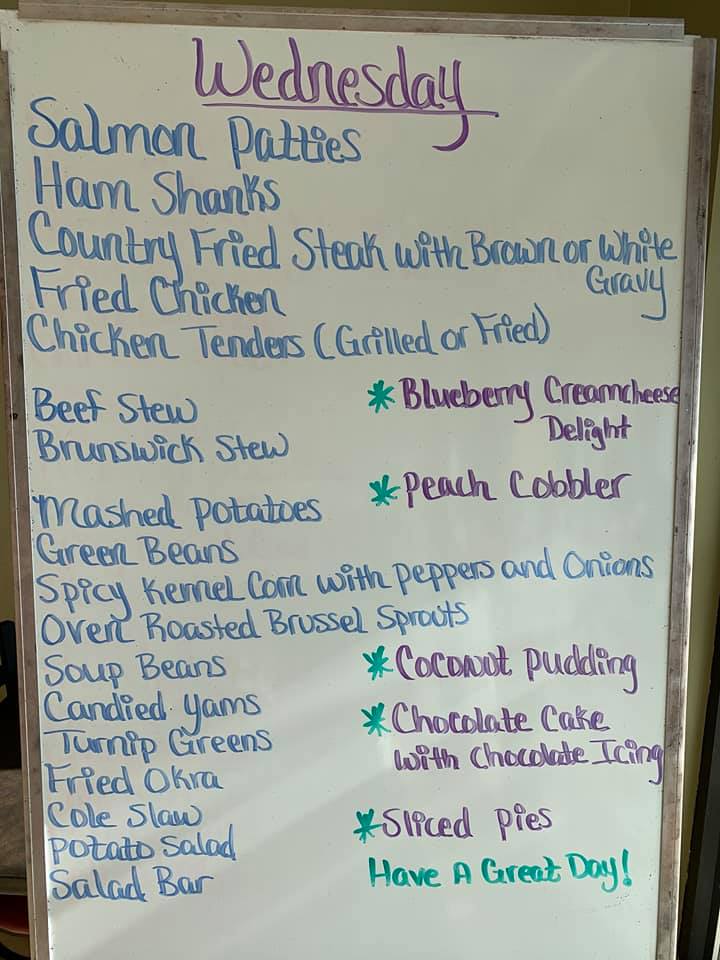 Wednesday
Salmon Patties
Ham Shanks
Country Fried Steak with Brown or White
Gravy
Fried Chicken
Chicken Tenders (Grilled or Fried)
Beef Stew
Brunswick Stew
* Blueberry Creamcheese
Delight
* Peach Cobbler
Mashed Potatoes
Green Beans
Spicy Kernel Corn with peppers and Onions
Oven Roasted Brussel Sprouts
Soup Beans
Candied Yams
Turnip Greens
Fried Okra
Cole Slaw
Potato Salad
Salad Bar
* Coconut pudding
* Chocolate Cake
with Chocolate Icing
* Sliced pies
Have A Great Day!